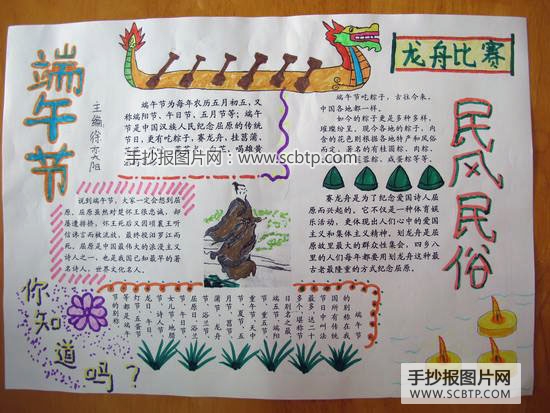 端午节
主编徐奕阳
龙舟比赛
民风民俗
端午节为每年农历五月初五,又
称端阳节、午日节、五月节等;端午
节是中国汉族人民纪念屈原的传统
节日,更有吃粽子,赛龙舟,挂菖蒲、
喝雄黄
端午节吃粽子,古往今来,
中国各地都一样。
如今的粽子更是多种多样,
璀璨纷呈。现今各地的粽子,
手抄报图片网:www.scbtp.com
说到端午节,大家一定会想到屈
原。屈原虽然对楚怀王很忠诚,却
屡遭排挤,怀王死后又因顷襄王听
信谗言而被流放,最终投汨罗江而
死。屈原是中国最伟大的浪漫主义
诗人之一,也是我国已知最早的著
名诗人,世界文化名人。
赛龙舟是为了纪念爱国诗人屈
原而兴起的。它不仅是一种体育娱
乐活动,更体现出人们心中的爱国
主义和集体主义精神。划龙舟是屈
原故里最大的群众性集会,四乡八
里的人们每年都要用划龙舟这种最
古老最隆重的方式纪念屈原。
端午节
的别称在我
国所有传统
节日中叫法
最多,达二十
多个,堪称节
日别名之最
你知道吗?
手抄报图片网
WWW.SCBTP.COM